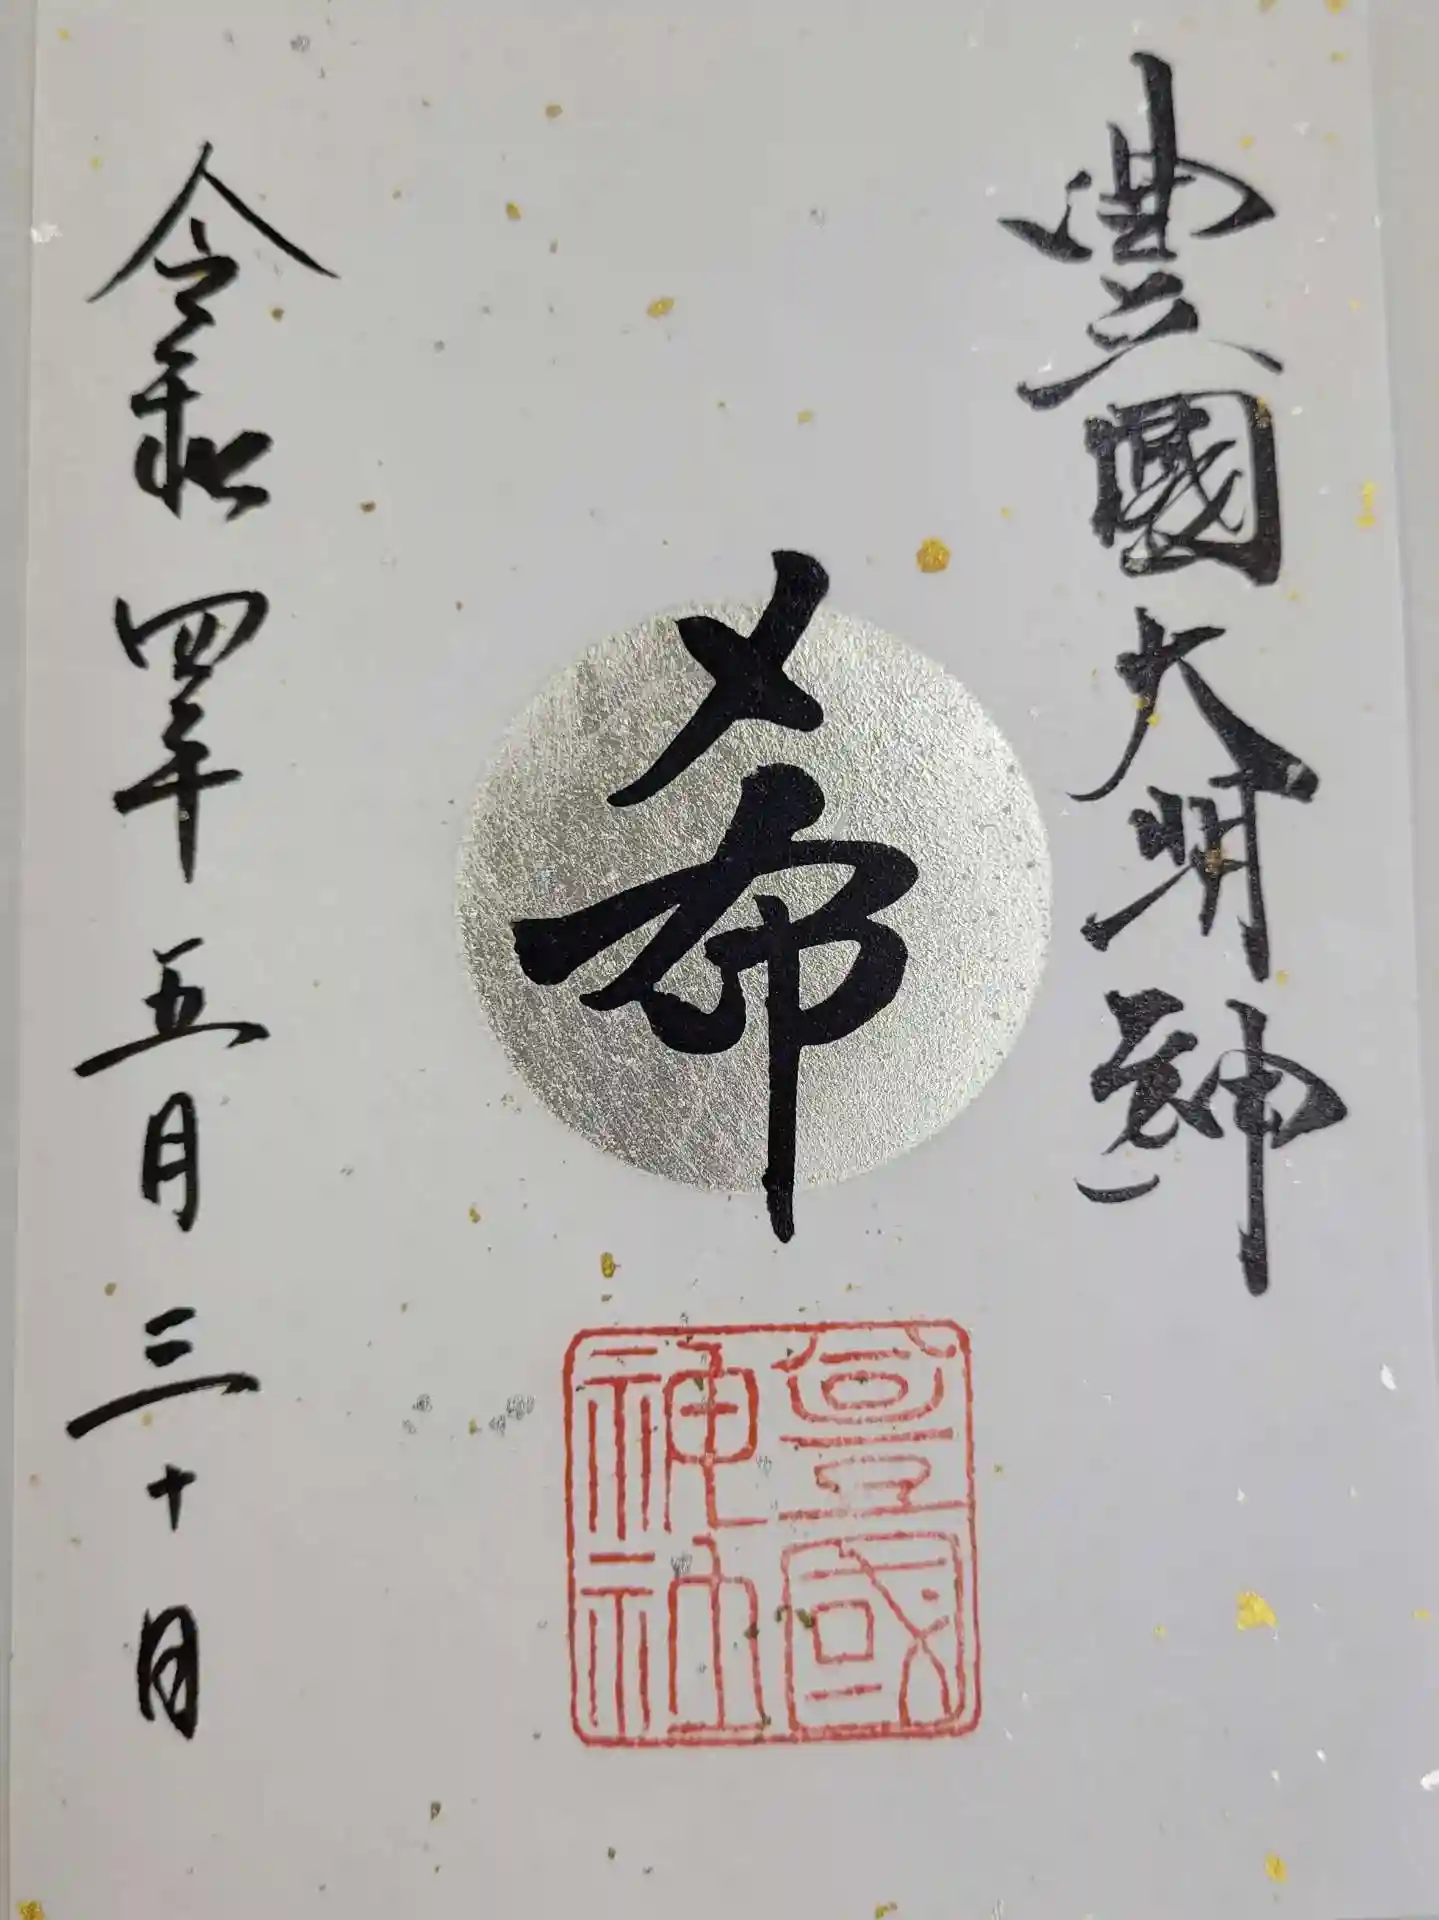 豐國大明神
希
豐國
神社
令和四年五月三十日